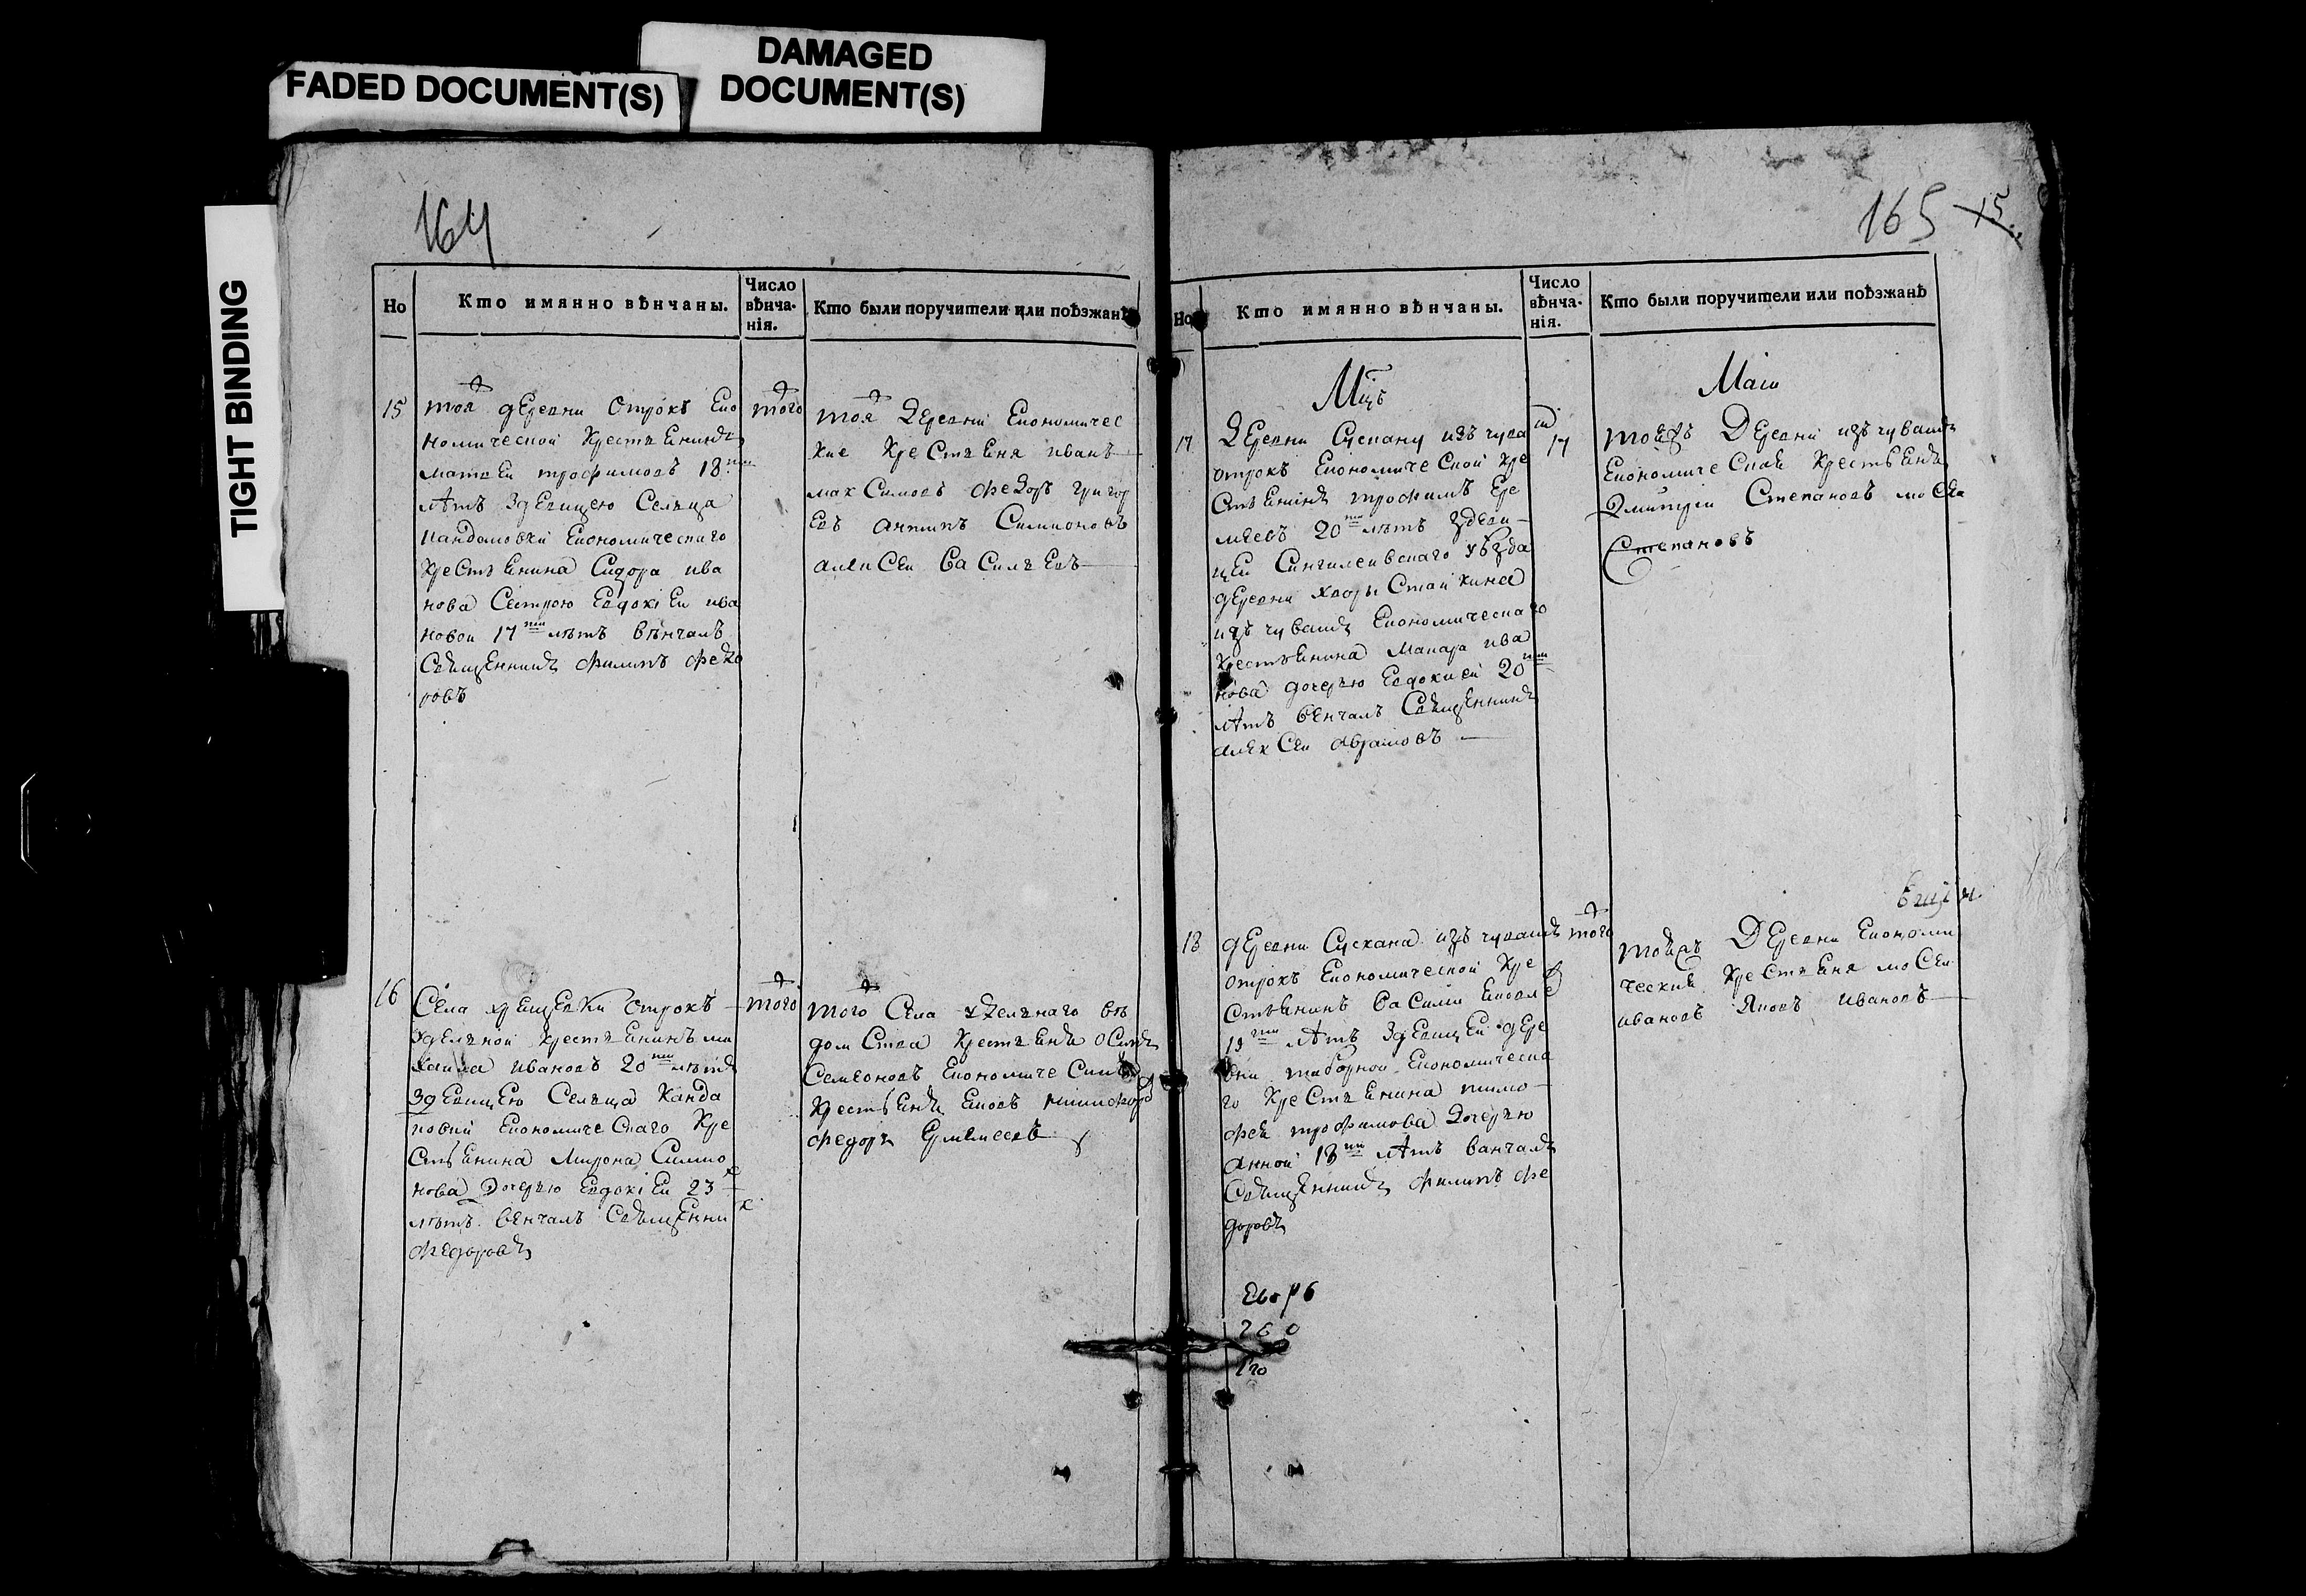 DAMAGED
DOCUMENT(S)
FADED DOCUMENT(S)
TIGHT BINDING
164
Но
Кто имянно вѣнчаны.
Число
вѣнча-
нія.
Кто были поручители или поѣзжанѣ
15
тоя деревни отрокъ Еко
номической крестьянинъ
матвей трофимовъ 18
лѣтъ здевицею Сельца
кандаковки Економическаго
крестьянина Сидора ива
нова Сестрою Евдокіей ива
новой 17 лѣтъ вѣнчалъ
Священникъ филипъ федо
ровъ
того
тоя деревни Економичес
кие крестьяня иванъ
максимовъ федоръ григор
евъ антипъ Симионовъ
алексей васильевъ
16
Села
отрокъ
удельной крестьянинъ ми
хайла ивановъ 20 лѣтъ
здевицею Сельца Канда
ковки Економическаго кре
стьянина мирона Симио
нова дочерью Евдокіей 23
лѣтъ венчалъ Священни
к
федоровъ
того
того Села удельнаго вѣ
домства крестьянъ осипъ
Семеоновъ Економическия
крестьянъ
федоръ
165
15
Но
Кто имянно вѣнчаны.
Число
вѣнча-
нія.
Кто были поручители или поѣзжанѣ
Мцъ
Маіи
17
Деревни изъ чува
отрокъ Економической кре
стьянинъ трофимъ Ере
меевъ 20 лѣтъ здеви
цей Сингилеивскаго уѣзда
деревни
изъ чувашъ Економическаго
крестьянина макара ива
нова дочерью Евдокией 20
лѣтъ венчалъ Священникъ
алексей аврамовъ
17
тойже Деревни изъ чувашъ
Економические крестьянъ
Дмитрій Степановъ мосеи
Степановъ
18
деревни изъ чувашъ
отрокъ Економической кре
стьянинъ васили
19 лѣтъ здевицей дере
вни таборной Економическа
го крестьянина тимо
фея трофимова дочерью
анной 18 лѣтъ ванчалъ
Священникъ филипъ фе
доровъ
того
тойже Деревни Економи
ческия крестьяня мосеи
ивановъ Яковъ ивановъ